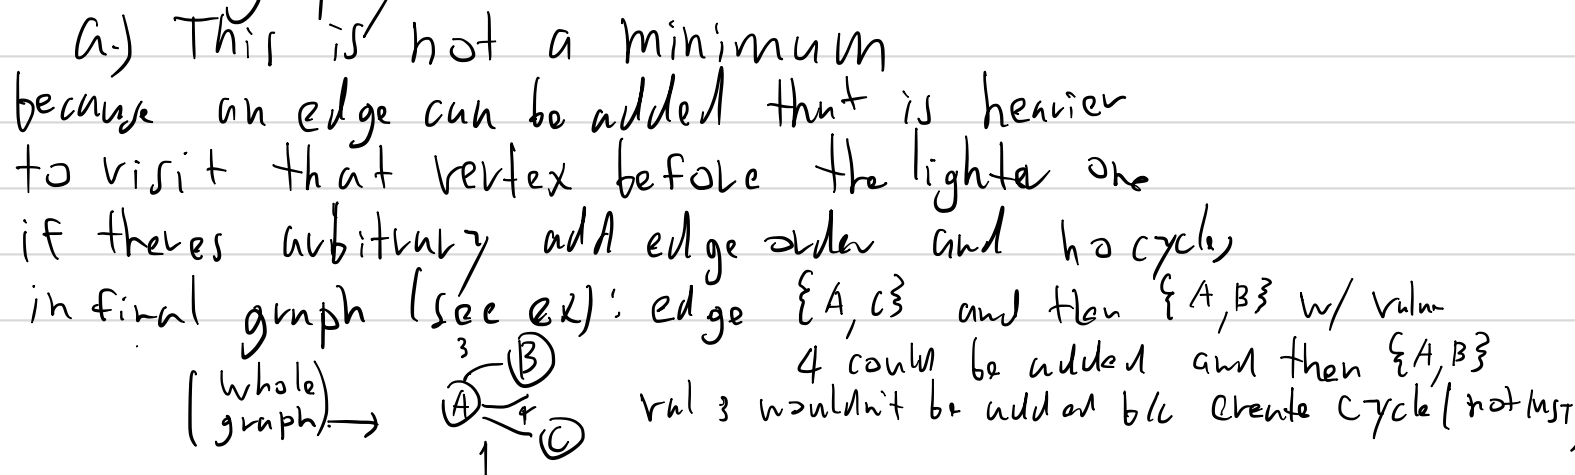 a.) This is not a minimum
because an edge can be added that is heavier
to visit that vertex before the lighter one
if theres arbitrary add edge order and no cycles
in final graph (see ex): edge {A,C} and then {A,B} w/ value
4 could be added and then {A,B}
(whole graph) → 3 B A 4 C 1
val 3 wouldn't be added b/c create cycle (not MST)